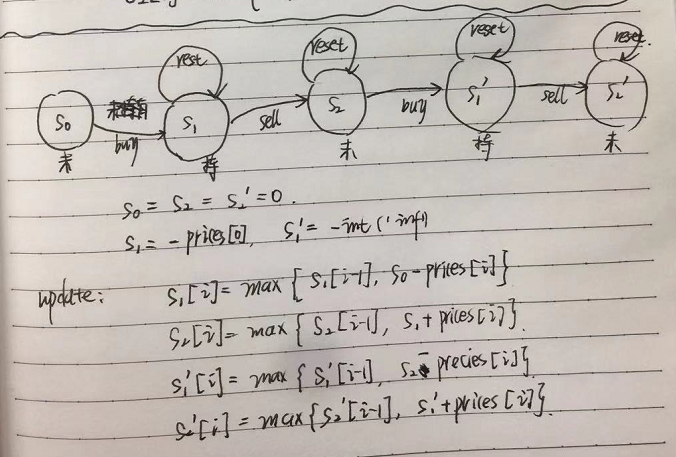 rest reset reset reset.
S₀ buy S₁ sell S₂ buy S₁' sell S₂'
未 持 未 持 未
S₀ = S₂ = S₂' = 0.
S₁ = - prices[0], S₁' = -int('inf')
update: S₁[i] = max { S₁[i-1], S₀ - prices[i] }
S₂[i] = max { S₂[i-1], S₁ + prices[i] }.
S₁'[i] = max { S₁'[i-1], S₂ - precies[i] }.
S₂'[i] = max { S₂'[i-1], S₁' + prices[i] }.